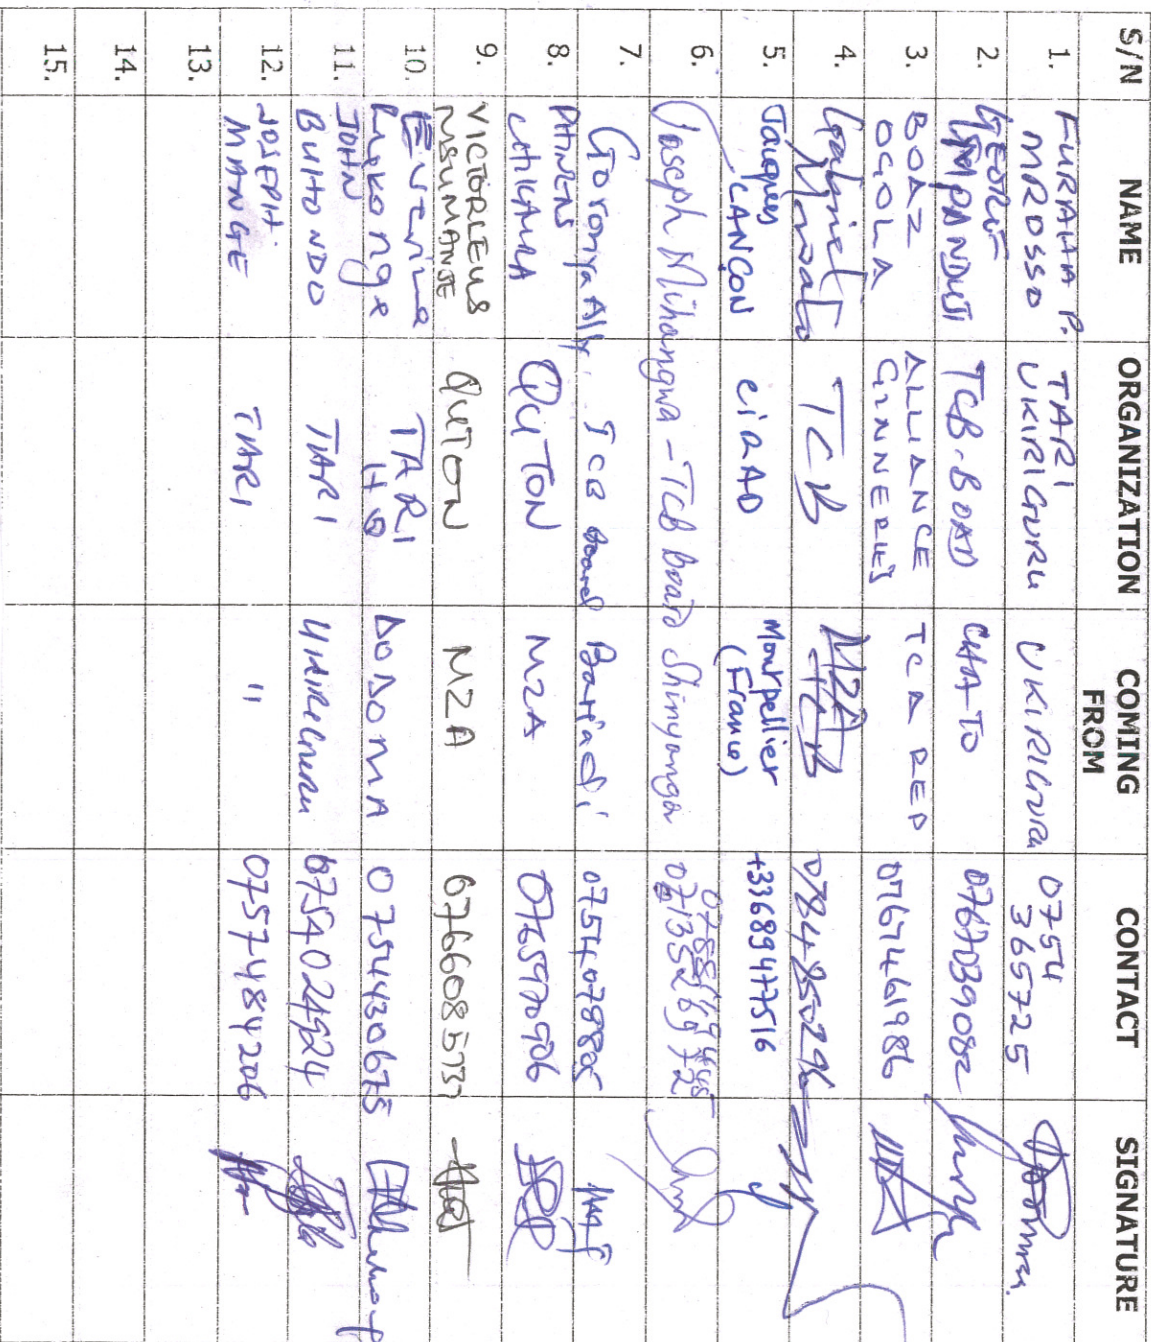 S/N NAME ORGANIZATION COMING FROM CONTACT SIGNATURE
1. FURAHA P. MROSSO TARI UKIRIGURU UKIRIGURU 0754 365725
2. GEORGE MPANDUJI TCB-BOAD CHATO 0767039082
3. BOAZ OGOLA ALLIANCE GINNERIES TCA RED 0767461986
4. Gabriel TCB MZA 0784850296
5. Jacques LANÇON CIRAD Montpellier (France) +33689477516
6. Joseph Mihangwa - TCB Board Shinyanga 0713526972
7. Glororiya Ally. TCB Board Bariadi 0754078805
8. PHINENS CHIKAURA QUTON MZA 0765970906
9. VICTORLEUS MSUMANJE QUTON MZA 0766085737
10. Everina Lukonge TARI HQ DODOMA 0754430675
11. JOHN BUHONDO TARI UKIRIGURU 0754024924
12. JOSEPH MANGE TARI " 0757484206
13.
14.
15.